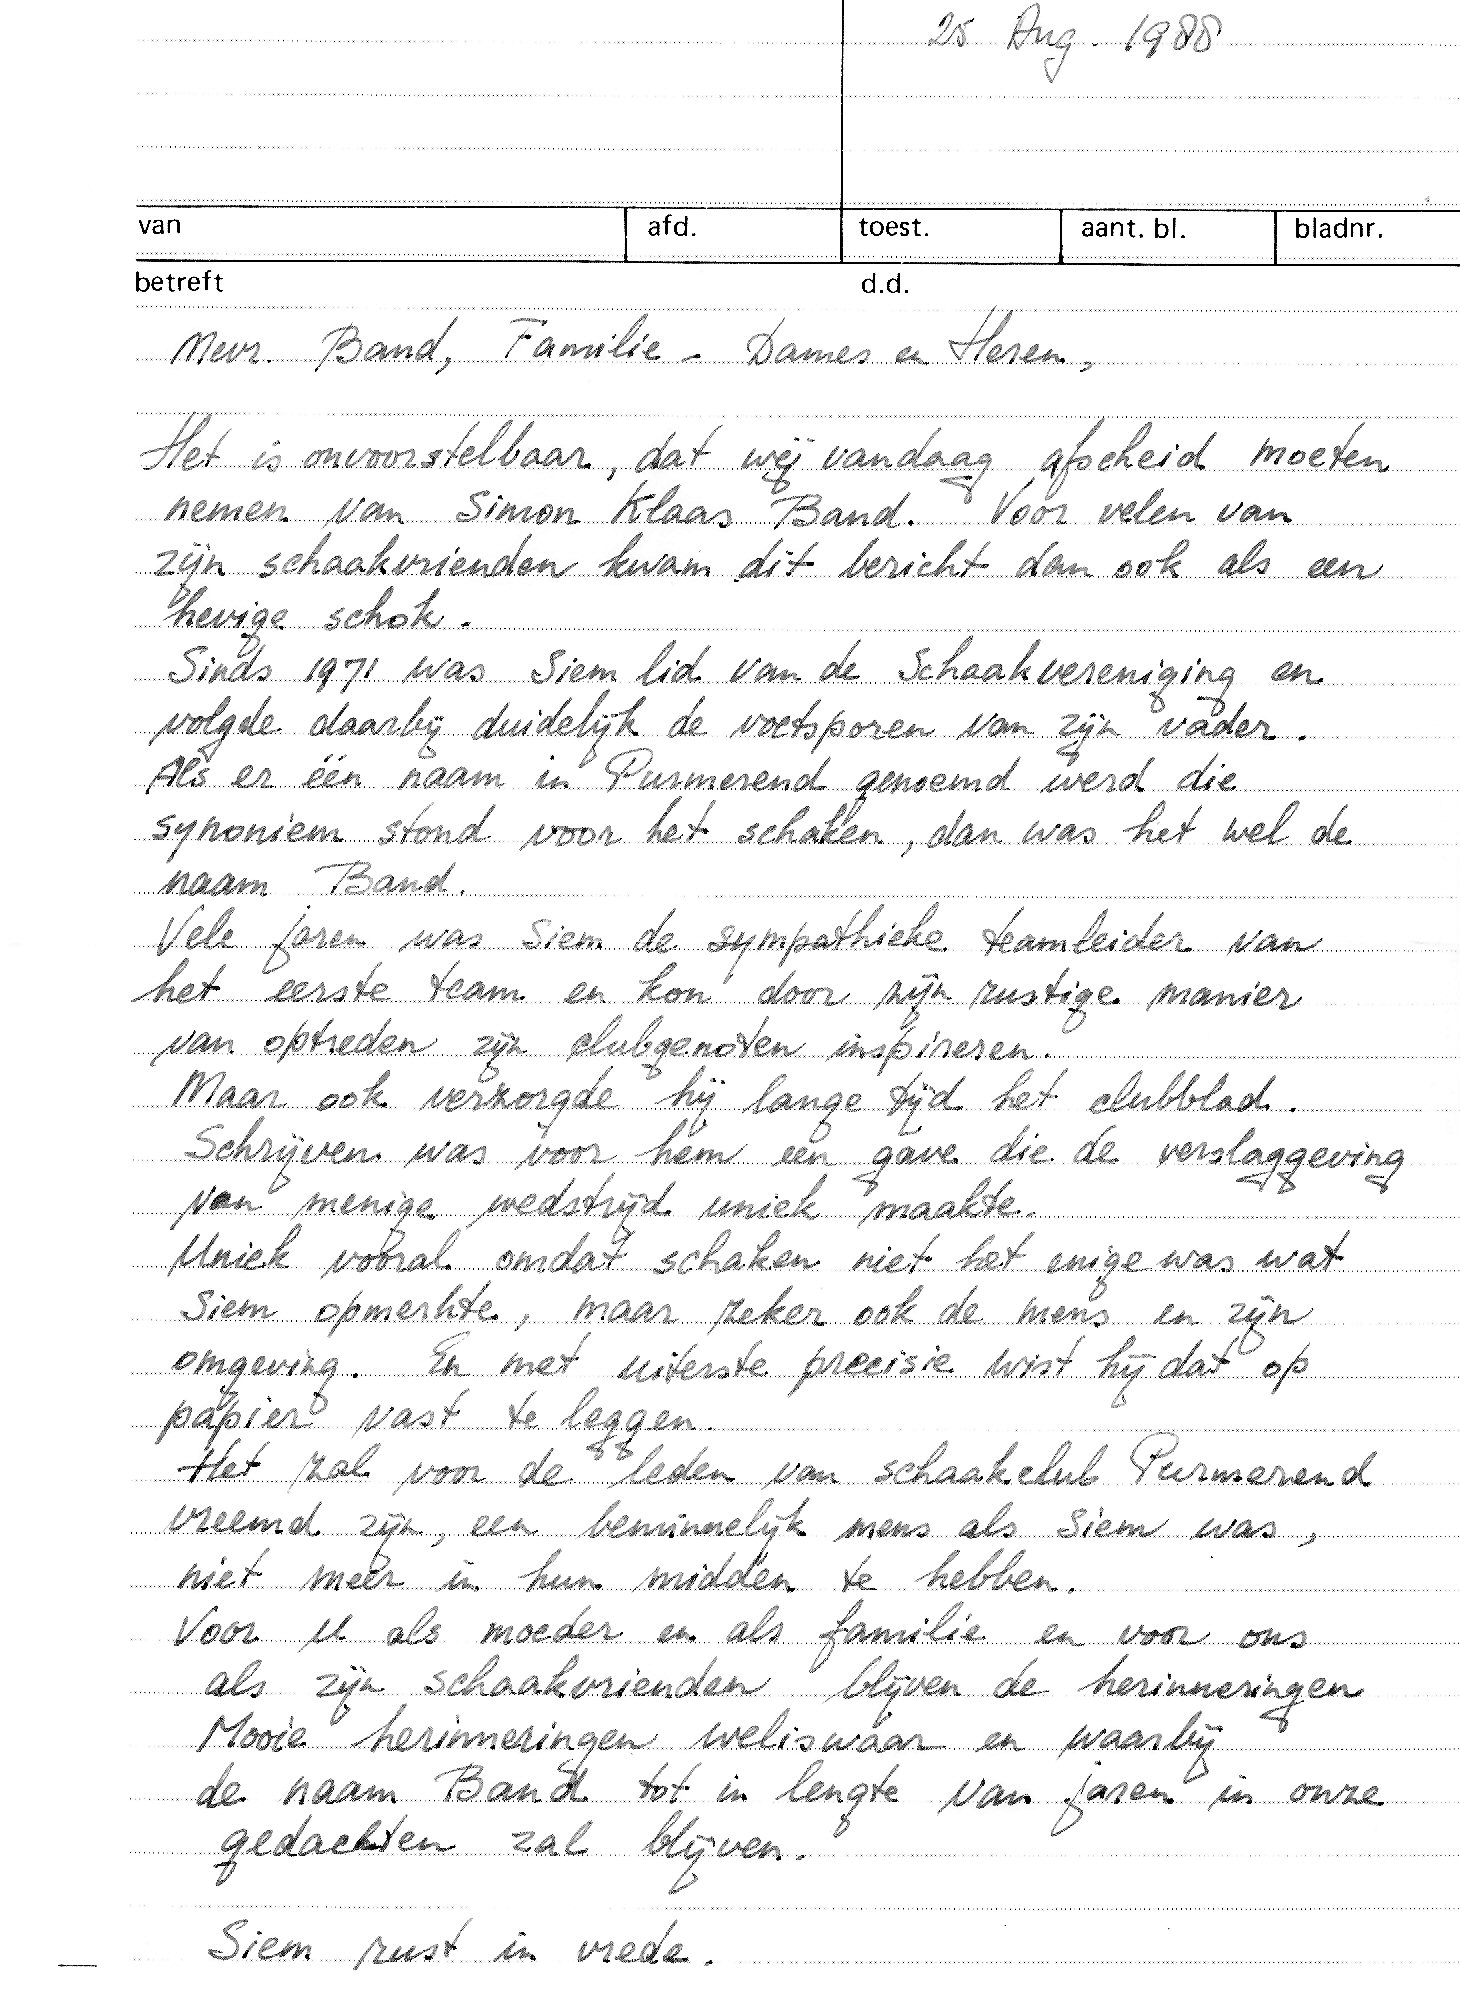 25 Aug. 1988
van afd. toest. aant. bl. bladnr.
betreft d.d.
Mevr. Band, Familie - Dames en Heren,
Het is onvoorstelbaar, dat wij vandaag afscheid moeten
nemen van Simon Klaas Band. Voor velen van
zijn schaakvrienden kwam dit bericht dan ook als een
hevige schok.
Sinds 1971 was Siem lid van de Schaakvereniging en
volgde daarbij duidelijk de voetsporen van zijn vader.
Als er één naam in Purmerend genoemd werd die
synoniem stond voor het schaken, dan was het wel de
naam Band.
Vele jaren was Siem de sympathieke teamleider van
het eerste team en kon door zijn rustige manier
van optreden zijn clubgenoten inspireren.
Maar ook verzorgde hij lange tijd het clubblad.
Schrijven was voor hem een gave die de verslaggeving
van menige wedstrijd uniek maakte.
Uniek vooral omdat schaken niet het enige was wat
Siem opmerkte, maar zeker ook de mens en zijn
omgeving. En met uiterste precisie wist hij dat op
papier vast te leggen.
Het zal voor de leden van schaakclub Purmerend
vreemd zijn, een beminnelijk mens als Siem was,
niet meer in hun midden te hebben.
Voor U als moeder en als familie en voor ons
als zijn schaakvrienden blijven de herinneringen
Mooie herinneringen weliswaar en waarbij
de naam Band tot in lengte van jaren in onze
gedachten zal blijven.
Siem rust in vrede.